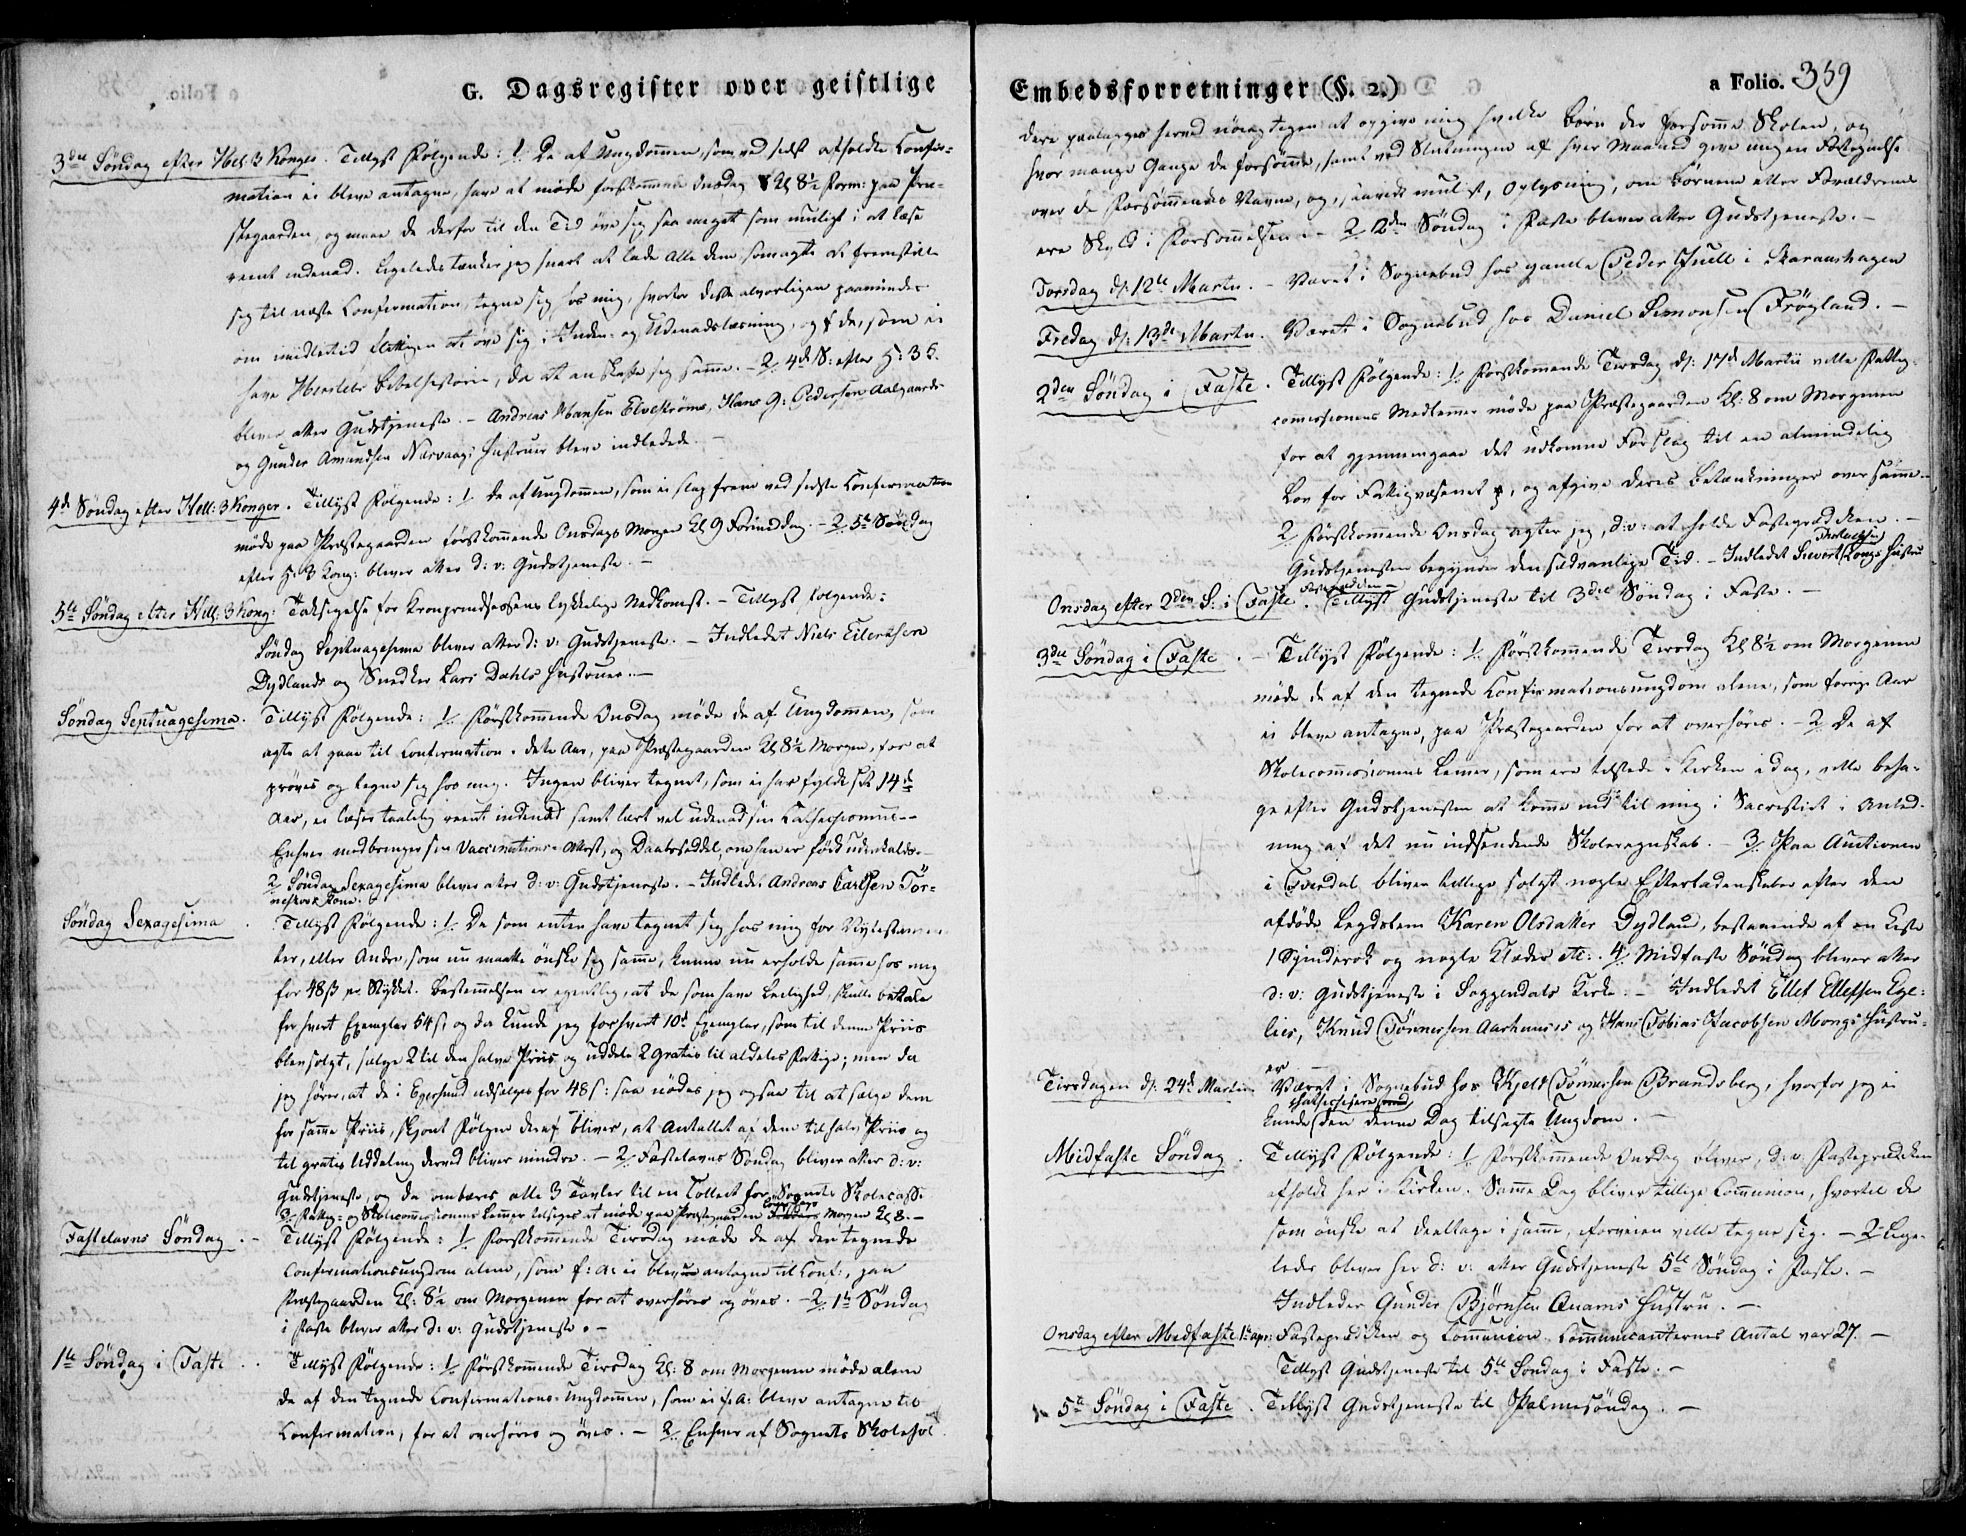 G. Dagsregister over geistlige
3die Søndag efter Hel: 3 Konger. Tillyst Følgende: 1/. De af Ungdommen, som ved sidst afholdte Confir=
mation ei bleve antagne, have at møde førstkommende Onsdag Kl 8½ Form: paa Præ-
stegaarden, og maae de derfor til den Tid øve sig saa meget som muligt i at læse
reent indenad. Ligeledes tænker jeg snart at lade alle dem, som agte at fremstille
sig til næste Confirmation, tegne sig hos mig, hvorfor disse alvorligen paamindes
om imidlertid flittigen at øve sig i Inden- og Udenadslæsning, og de, som ei
have Herslebs Bibelhistorie, da at anskaffe sig samme. - 2/. 4de S: efter H: 3 K.
bliver atter Gudstjeneste. - Andreas Hansen Elvestrøms, Hans G: Pedersen Aalgaards
og Gunder Amundsen Nesvaags Hustruer bleve indledede. -
4de Søndag efter Hell: 3 Konger. Tillyst Følgende: 1/. De af Ungdommen, som ei slap frem ved sidste Confirmation
møde paa Præstegaarden førstkommende Onsdags Morgen Kl 9 Formiddag. - 2/. 5te Søndag
efter H: 3 Kong: bliver atter d: v: Gudstjeneste. -
5te Søndag efter Hell: 3 Kong: Taksigelse for Kronprindsessens lykkelige Nedkomst. - Tillyst følgende:
Søndag Septuagesima bliver atter d: v: Gudstjeneste. - Indledet Niels Eilertsen
Dydlands og Snedker Lars Dahls Hustruer. -
Søndag Septuagesima. Tillyst Følgende: 1/. Førstkommende Onsdag møde de af Ungdommen, som
agte at gaae til Confirmation dette Aar, paa Præstegaarden Kl 8½ Morgen, for at
prøves og tegne sig hos mig. Ingen bliver tegnet, som ei har fyldt sit 14de
Aar, ei læser taalelig reent indenad samt lært vel udenad sin Cathechismus. -
Enhver medbringer sin Vaccinations-Attest, og Daabsseddel, om han er født udensogns. -
2/ Søndag Sexagesima bliver atter d: v: Gudstjeneste. - Indledet Andreas Carlsen Tør=
Kone.
Søndag Sexagesima. Tillyst Følgende: 1/. De som enten have tegnet sig hos mig for Nytestamen-
ter, eller Andre, som nu maatte ønske sig samme, kunne nu erholde samme hos mig
for 48 ß pr Stykket. Bestemmelsen er egentlig, at de som have Leilighed, skulle betale
for hvert Exemplar 54 ß, og da kunde jeg for hvert 10de Exemplar, som til denne Priis
blev solgt, sælge 2 til den halve Priis og uddele 2 gratis til aldeles Fattige; men da
jeg hører, at de i Egersund udsælges for 48 ß: saa nødes jeg ogsaa til at sælge dem
for samme Priis, skjønt Følgen deraf bliver, at Antallet af dem til halv Priis og
til gratis Uddeling derved bliver mindre. - 2/. Fastelavns Søndag bliver atter d: v:
Gudstjeneste, og da ombæres alle 3 Tavler til en Collect for Sognets Skolecasse
3/. Fattig- og Skolecommissionens Lemmer tilsiges at møde paa Præstegaarden Morgen Kl 8. -
Fastelavns Søndag. - Tillyst Følgende: 1/. Førstkommende Tirsdag møde de af den tegnede
Confirmationsungdom alene, som f: A: ei bleve antagne til Conf:, paa
Præstegaarden Kl: 8½ om Morgenen for at overhøres og øves. - 2/. 1te Søndag
i Faste bliver atter d: v: Gudstjeneste. -
1te Søndag i Faste. Tillyst Følgende: 1/. Førstkommende Tirsdag Kl: 8 om Morgenen møde alene
de af den tegnede Confirmations-Ungdommen, som ei f: A: bleve antagne til
Confirmation, for at overhøres og øves. - 2/. Enhver af Sognets Skolehol-
Embedsforretninger (§. 2.) a Folio. 359
dere paalægges herved nøiagtigen at opgive mig hvilke Børn der forsømme Skolen, og
hvor mange Gange de forsømme, samt ved Slutningen af hver Maaned give mig en Fortegnelse
over de Forsømmendes Navne, og, saavidt muligt, Oplysning, om Børnene eller Forældrene
ere Skyld i Forsømmelsen. - 2/. 2den Søndag i Faste bliver atter Gudstjeneste. -
Torsdag d: 12te Martii. - Været i Sognebud hos gamle Peder Juell i Skaranshagen
Fredag d: 13de Martii. Været i Sognebud hos Daniel Simonsen Frøyland. -
2den Søndag i Faste. Tillyst Følgende: 1/. Førstkommende Tirsdag d: 17de Martii ville Fattig-
comissionens Medlemmer møde paa Præstegaarden Kl: 8 om Morgenen
for at gjennemgaae det udkomne Forslag til en almindelig
Lov for Fattigvæsenet, og afgive deres Betænkninger over samme. -
2/ Førstkommende Onsdag agter jeg, d: v: at holde Fasteprædiken. -
Gudstjenesten begynder den sædvanlige Tid. - Indledet Sivert Hustru
Onsdag efter 2den S: i Faste. Fasteprædiken - Tillyst Gudstjeneste til 3die Søndag i Faste. -
3die Søndag i Faste. - Tillyst Følgende: 1/. Førstkommende Tirsdag Kl 8½ om Morgenen
møde de af den tegnede Confirmationsungdom alene, som forrige Aar
ei bleve antagne, paa Præstegaarden for at overhøres. - 2/ De af
Skolecommissionens Lemmer, som ere tilstede i Kirken idag, ville beha-
ge efter Gudstjenesten at komme ind til mig i Sacristiet i Anled-
ning af det nu indsendende Skoleregnskab. - 3/. Paa Auctionen
i Tverdal bliver tillige solgt nogle Efterladenskaber efter den
afdøde Lægdslem Karen Olsdatter Dydland, bestaaende af en Kiste
1 Spinderok og nogle Klæder etc. 4/ Midfaste Søndag bliver atter
d: v: Gudstjeneste i Soggendals Kirke. - Indledet Ellef Ellefsen Ege=
lies, Knud Tønnesen Aarhuuses og Hans Tobias Jacobsen Mongs Hustru=
er -
Tirsdagen d: 24de Martii Været i Sognebud hos Kjeld Tønnesen Brandsberg, hvorfor jeg ei
kunde cathechisere den denne Dag tilsagte Ungdom. -
Midfaste Søndag. Tillyst Følgende: 1/. Førstkommende Onsdag bliver, d: v: Fasteprædiken
afholdt her i Kirken. Samme Dag bliver tillige Communion, hvortil de
som ønske at deeltage i samme, iforveien ville tegne sig. - 2/ Lige-
ledes bliver her d: v: atter Gudstjeneste 5te Søndag i Faste. -
Indledet Gunder Bjørnsen Qvams Hustru. -
Onsdag efter Midfaste 1te apr: Fasteprædiken og Communion. Communicanternes Antal var 27. -
Tillyst Gudstjeneste til 5te Søndag i Faste. -
5te Søndag i Faste. Tillyst Gudstjeneste til Palmesøndag. -